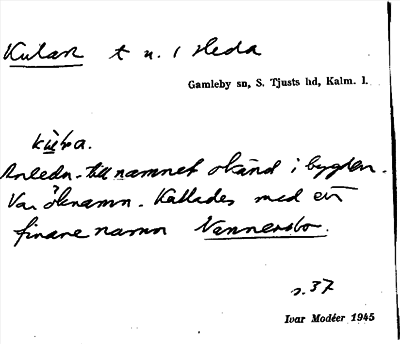 Kulan t n. i Heda
Gamleby sn, S. Tjusts hd, Kalm. l.
Anledn. till namnet okänd i bygden.
Var öknamn. Kallades med ett
finare namn Vannersbo.
s. 37
Ivar Modéer 1945